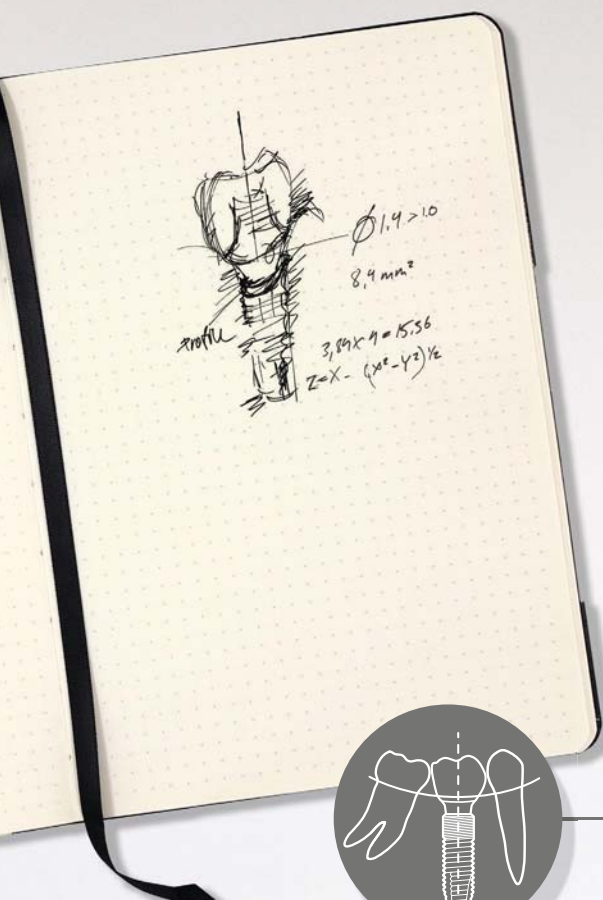 Ø 1.4 > 1.0
8,4 mm²
Profile
3,89 x 4 = 15.56
Z = X - (x² - y²) ½